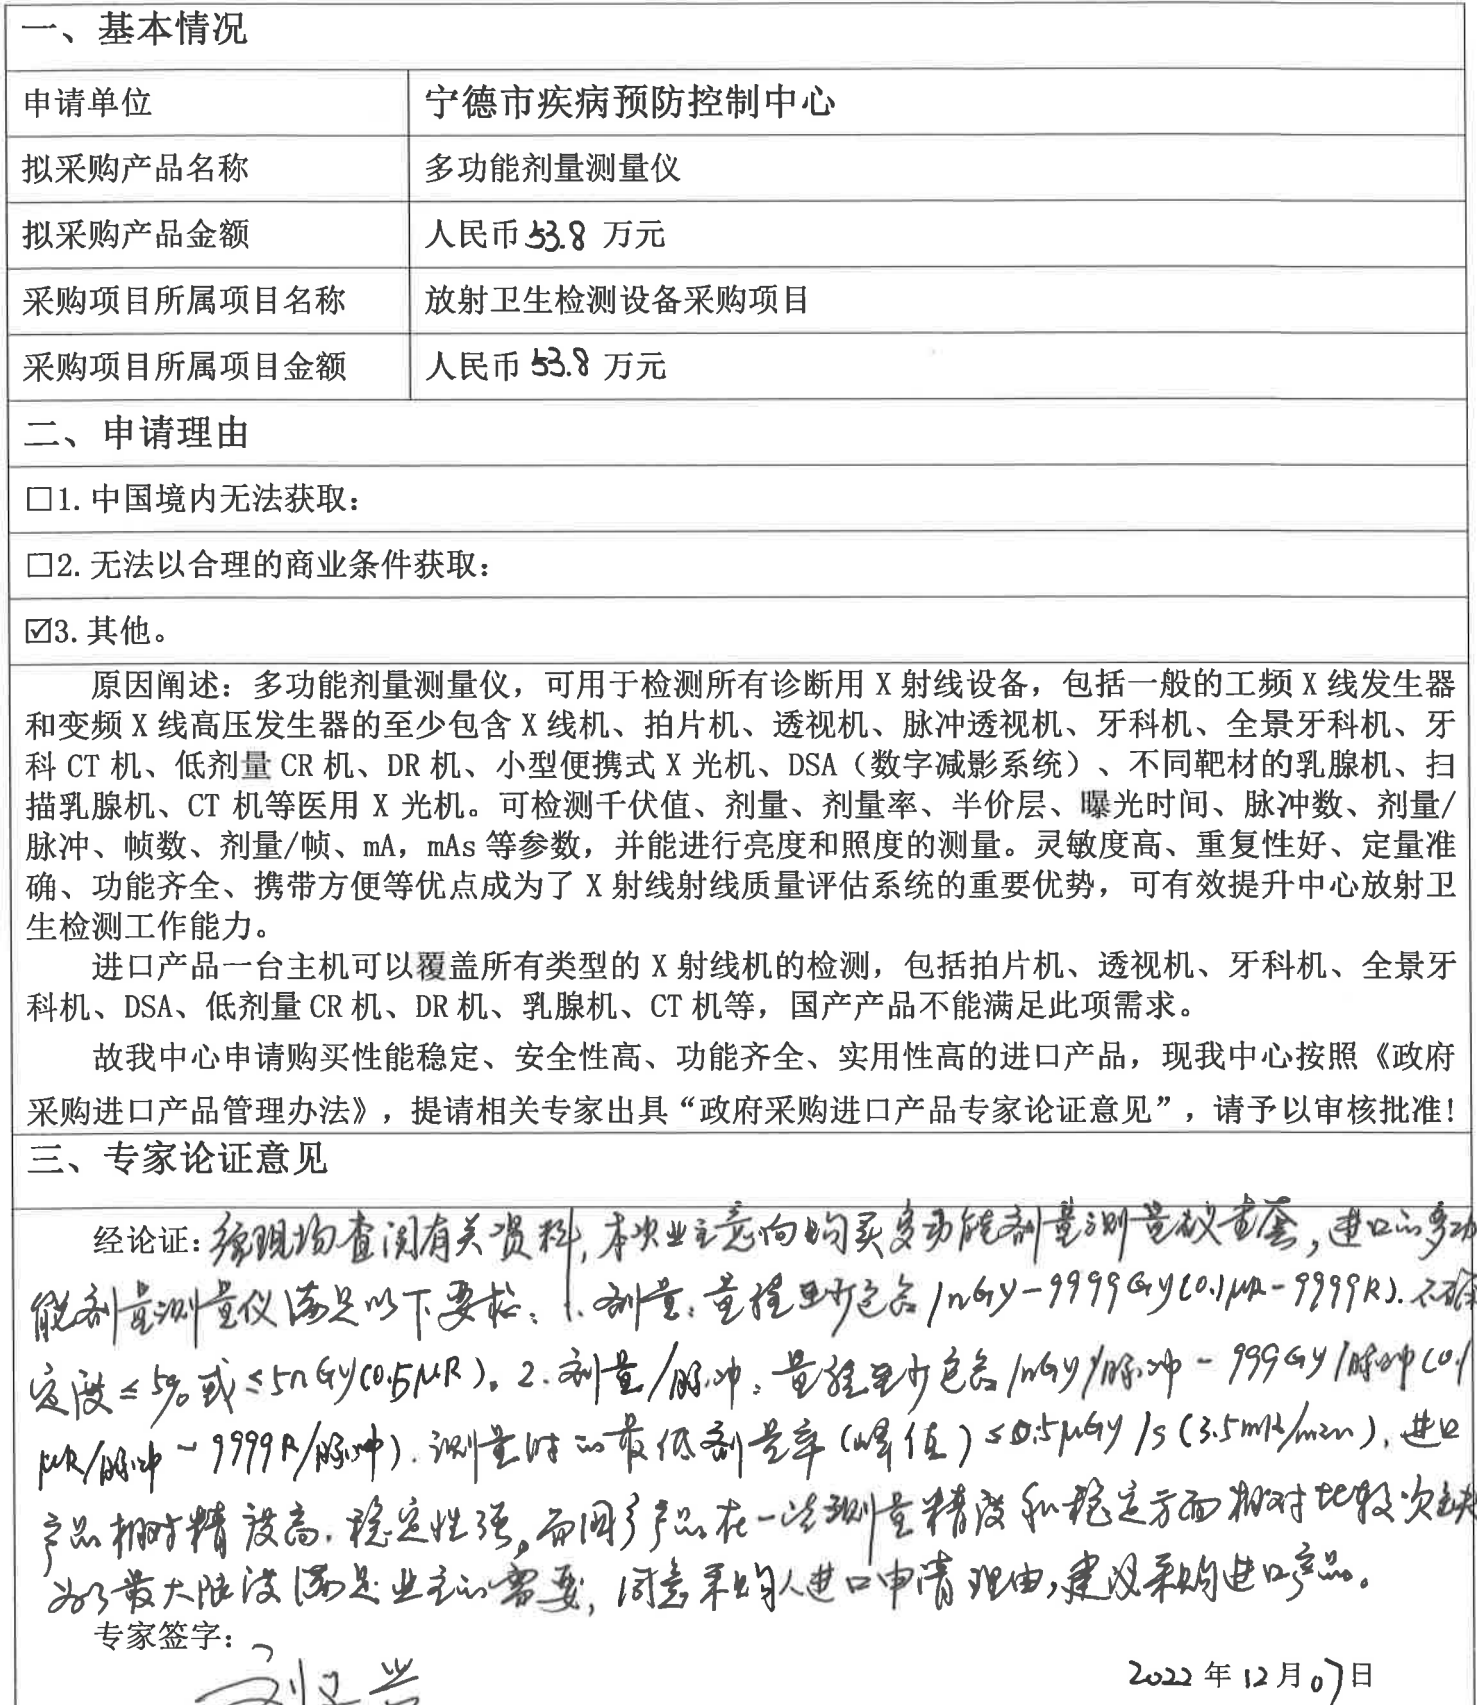 一、基本情况
申请单位 宁德市疾病预防控制中心
拟采购产品名称 多功能剂量测量仪
拟采购产品金额 人民币 53.8 万元
采购项目所属项目名称 放射卫生检测设备采购项目
采购项目所属项目金额 人民币 53.8 万元
二、申请理由
□1.中国境内无法获取：
□2.无法以合理的商业条件获取：
☑3.其他。
原因阐述：多功能剂量测量仪，可用于检测所有诊断用 X 射线设备，包括一般的工频 X 线发生器
和变频 X 线高压发生器的至少包含 X 线机、拍片机、透视机、脉冲透视机、牙科机、全景牙科机、牙
科 CT 机、低剂量 CR 机、DR 机、小型便携式 X 光机、DSA（数字减影系统）、不同靶材的乳腺机、扫
描乳腺机、CT 机等医用 X 光机。可检测千伏值、剂量、剂量率、半价层、曝光时间、脉冲数、剂量/
脉冲、帧数、剂量/帧、mA，mAs 等参数，并能进行亮度和照度的测量。灵敏度高、重复性好、定量准
确、功能齐全、携带方便等优点成为了 X 射线射线质量评估系统的重要优势，可有效提升中心放射卫
生检测工作能力。
进口产品一台主机可以覆盖所有类型的 X 射线机的检测，包括拍片机、透视机、牙科机、全景牙
科机、DSA、低剂量 CR 机、DR 机、乳腺机、CT 机等，国产产品不能满足此项需求。
故我中心申请购买性能稳定、安全性高、功能齐全、实用性高的进口产品，现我中心按照《政府
采购进口产品管理办法》，提请相关专家出具“政府采购进口产品专家论证意见”，请予以审核批准！
三、专家论证意见
经论证：经现场查阅有关资料，本次业主意向购买多功能剂量测量仪壹套，进口的多功
能剂量测量仪满足以下要求：1.剂量：量程至少包含1nGy-9999Gy(0.1μR-9999R).不确
定度≤5%或≤5nGy(0.5μR)。2.剂量/脉冲：量程至少包含1nGy/脉冲-999Gy/脉冲(0.1
μR/脉冲-9999R/脉冲).测量时的最低剂量率(峰值)≤0.5μGy/s(3.5mR/min).进口
产品相对精度高.稳定性强。而国产产品在一些测量精度和稳定方面相对比较欠缺
为了最大限度满足业主的需要，同意采购人进口申请理由，建议采购进口产品。
专家签字：
2022 年 12 月 07 日